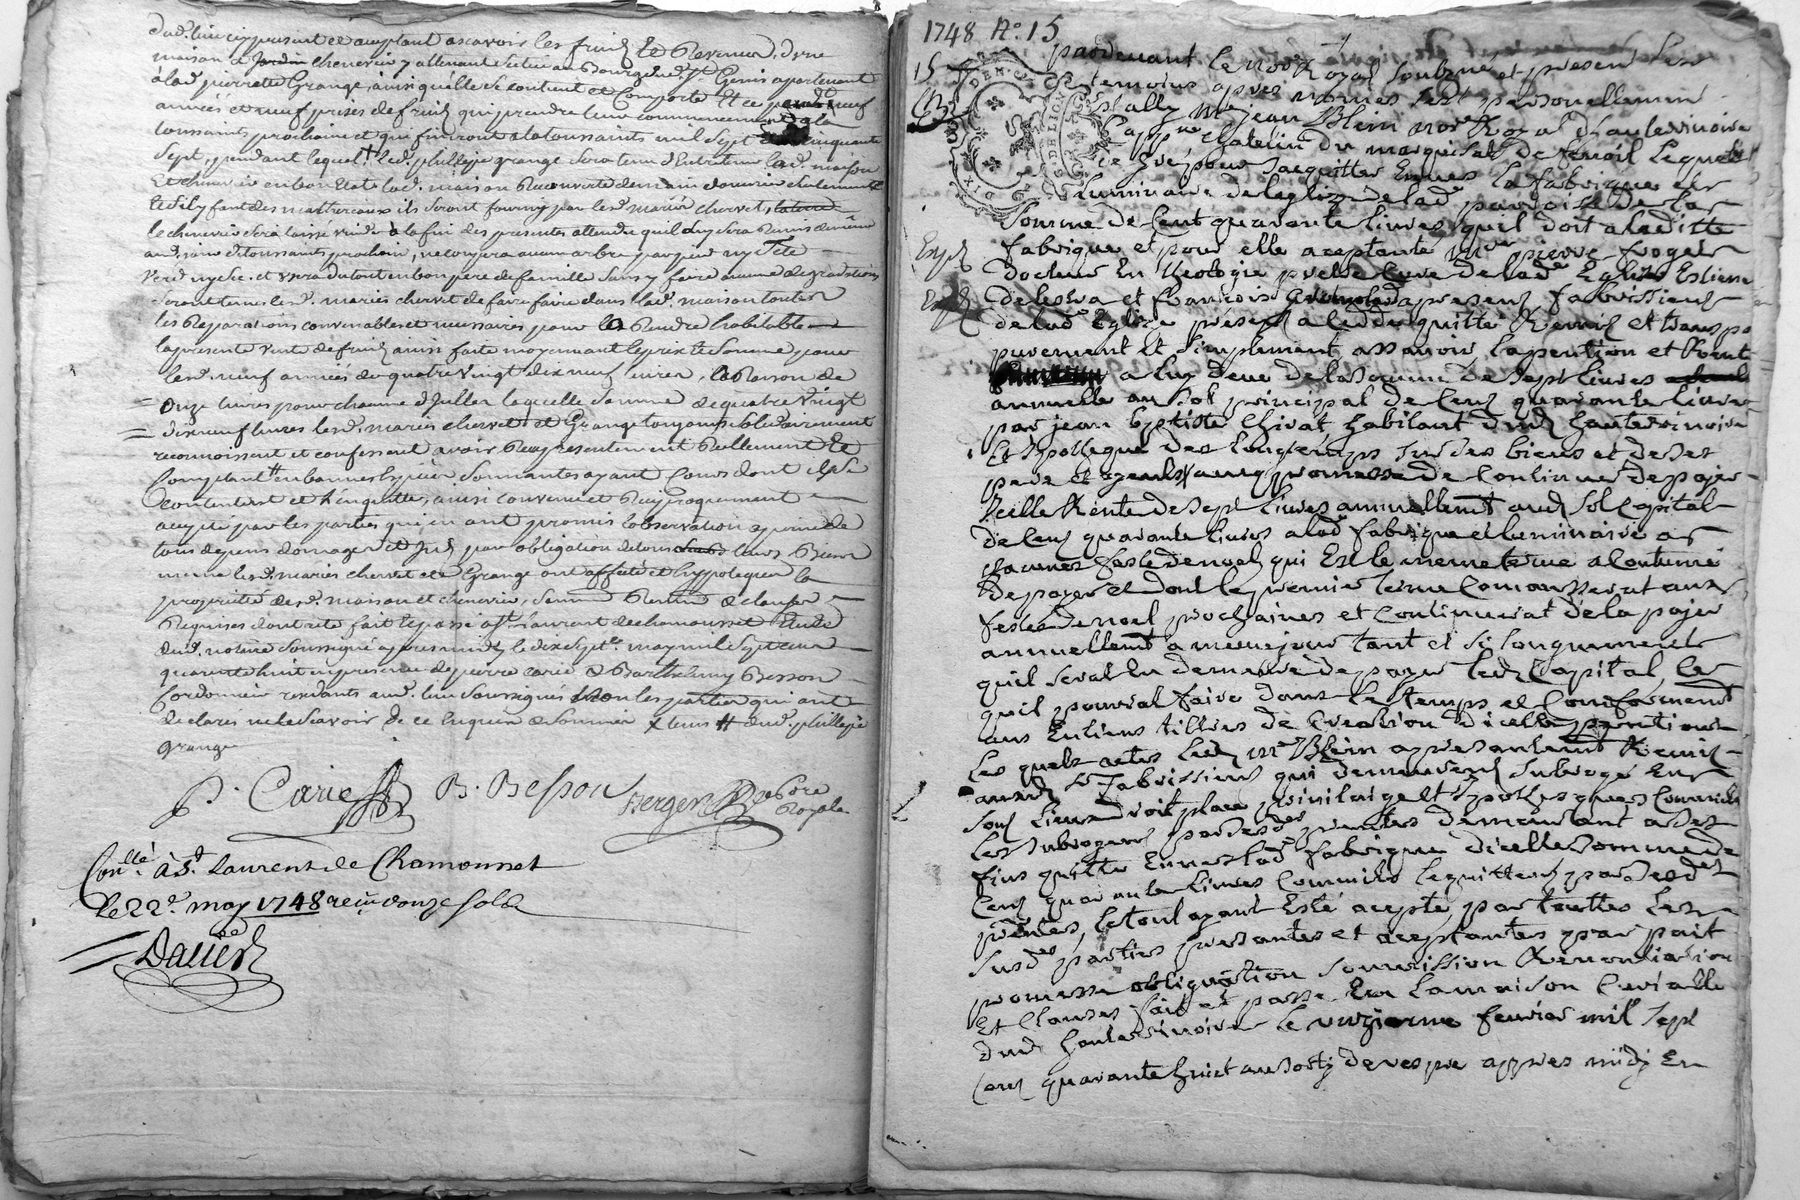 dud. lieu cy present et aceptant ascavoir les fruits et Revenus d'une
maison et chenevier y attenant situé au Bourg dud. St Genis apartenant
à lad. pierrette Grange, ainsi quelle se contient et Comporte Et ce pendt neuf
années et neuf prises de fruits qui prendre leur commencement a la
toussaints prochaine et qui finiront a la toussaints mil sept cinquante
sept, pendant lequel led. phillipe grange sera tenu d'Entretenir lad. maison
Et chenevier en bon Etat lad. maison Recouverte de main d'ouvrier seulement
Et s'il y faut des mattereaux ils seront fournis par lesd. mariés chervet,
le chenevier sera laissé vuide a la fin des presentes attendu quil luy sera Remis de même
aud. jour de toussaints prochain, ne coupera aucun arbre par pied ny Tête
verd ny sec et usera du tout en bon pere de famille sans y faire aucune degradations
seront tenus lesd. mariés chervet de faire faire dans lad. maison toutes
les Reparations convenables et necessaires pour la Rendre habitable
la presente vente de fruits ainsi faite moyennant le prix et Somme pour
lesd. neuf années de quatre vingt dix neuf livres, a Raison de
onze livres pour chacune d'Icelles laquelle somme de quatre vingt
dix neuf livres lesd. mariés chervet et Grange toujours solidairement
reconnoissent et confessent avoir Reçu presentement Réellement et
Comptant en bonnes Especes Sonnantes ayant Cours dont ils se
contentent et l'en quittes, ainsi convenu et Reciproquement
accepté par les parties qui en ont promis l'observation a peine de
tous depens domages et Jnts par obligation de tous leurs Biens
même lesd. mariés chervet et Grange ont affecté et hypotequé la
propriété desd. maison et chenevier, Soum Renon & clauses
Requises dont acte fait et passé a St Laurent de chamousset Etude
dud. notaire soussigné apres midy le dix sept may mil sept cent
quarante huit en presence de pierre carie & Barthelemy Besson
Cordonnier residants aud. lieu soussignés non les parties qui ont
declaré ne le sçavoir de ce Enquis & sommés X tems # dud. phillipe
grange
P. Carie B. Besson Bergeron Nore Royale
Conllé à St. Laurent de Chamousset
le 22e. may 1748 reçu douze sols
Dalier
1748 No. 15
15
pardevant le nore Royal soubzné et presens Les
temoins apres nommés fut personellement
Estably Mr jean Blein nore Royal d'hauterivoire
Chatelin du marquisat de fenoil Lequel
de gré pour sacquitter Envers la fabrique et
Luminaire de leglize de lad paroisse de la
Somme de Cent quarante livres quil doit a laditte
fabrique et pour elle aceptante Mre pierre froget
Expé
Docteur En theologie prebtre Curé de lad Eglise Estienne
Expé
et francois apresent fabrissiens
de lad Eglise presents a cedde quitte Remis et transpo
purement et simplement assavoir la pention et Rente
a luy deue de la somme de sept livres
annuelle au sol principal de Cent quarante livres
par jean baptiste Chirat habitant dud hauterivoire
Et hypotheque des longtemps sur des biens et de ses
pere et avec promesse de Continuer de payer
Icelle Rente de sept livres annuellemt aud sol Capital
de Cent quarante livres a lad fabrique et luminaire a
chacunes feste de noel qui Est le meme terme a Coutume
de payer et dont le premier terme Comancerat aux
festes de noel prochaines et Continuerat de la payer
annuellemt a meme jour tant et si longuement
quil serat En demeure de payer led Capital, ce
quil pourrat faire dans le temps et Conformement
aux Entiens tiltres de Creation d'icelle pention
Les quels actes led Mr Blein a presentement Remis
auxd Srs fabrissiens qui demeurent Subrogé En
son lieu droit place privileige et hypotheques Comme il
Les Subrogent par lesd presentes demeurant a ces
fins quitte Envers lad fabrique dicelle somme de
Cent quarante livres Comme ils le quittent par lesdes
presentes, le tout ayant Esté acepté par touttes Les
Susd. parties presantes et aceptantes par pait
promesse obligation soumission Renontiation
Et Clauses fait et passé En la maison Curialle
dud hauterivoire Le vingtieme fevrier mil sept
Cent quarante huit au sorty de vespre apprès midy En